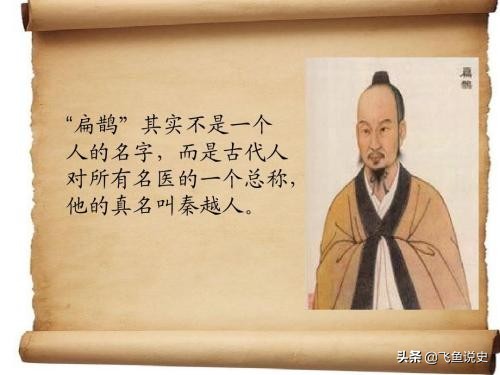 “扁鹊”其实不是一个
人的名字，而是古代人
对所有名医的一个总称，
他的真名叫秦越人。
扁鹊
头条 @飞鱼说史